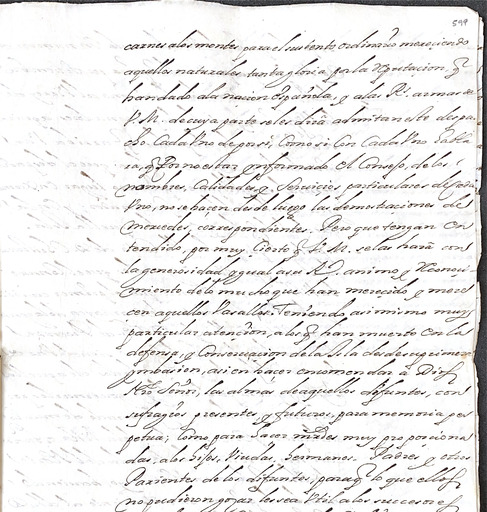 599
carnes a los montes para el sustento ordinario mereciendo
aquellos naturales tanta gloria por la Reputacion, q
han dado a la nacion española, y a las Rs. armas de
V.M. de cuya parte seles dira admitan este despa
cho Cada Vno de por si, Como si Con Cada Vno habla
ra, q por no estar ynformado el Consejo, de los
nombres, Calidades, y Servicios particulares de cada
Vno, no se hacen desde luego las demostraciones de
mercedes, correspondientes. Pero que tengan en
tendido, por muy Cierto q V.M. se las hará con
la generosidad ygual a su Rl. animo y Reconoci
miento de lo mucho que han merecido, y mere
cen aquellos Vasallos: Teniendo, asimismo muy
particular atencion, a los q han muerto en la
defensa, y Conservacion de la Isla desde su primera
ymbasion, asi en hacer encomendar á Dios
Nro Señor, las almas de aquellos difuntos, con
sufragios presentes, y futuros, para memoria per
petua; Como para hacer mrds muy proporciona
das, a los hijos, Viudas, hermanos, Padres y otros
Parientes de los difuntos, para q lo que ellos
no pudieron gozar les sea Vtil a los succesores